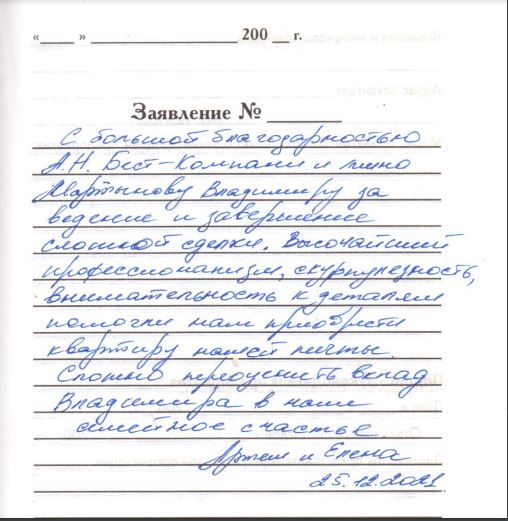 «____» ____________________ 200 __ г.
Заявление № ________
С большой благодарностью
А.Н. Бест-Компани и лично
Мартынову Владимиру за
ведение и завершение
сложной сделки. Высочайший
профессионализм, скурпулезность,
внимательность к деталям
помогли нам приобрести
квартиру нашей мечты.
Сложно переоценить вклад
Владимира в наше
семейное счастье
Артем и Елена
25.12.2021